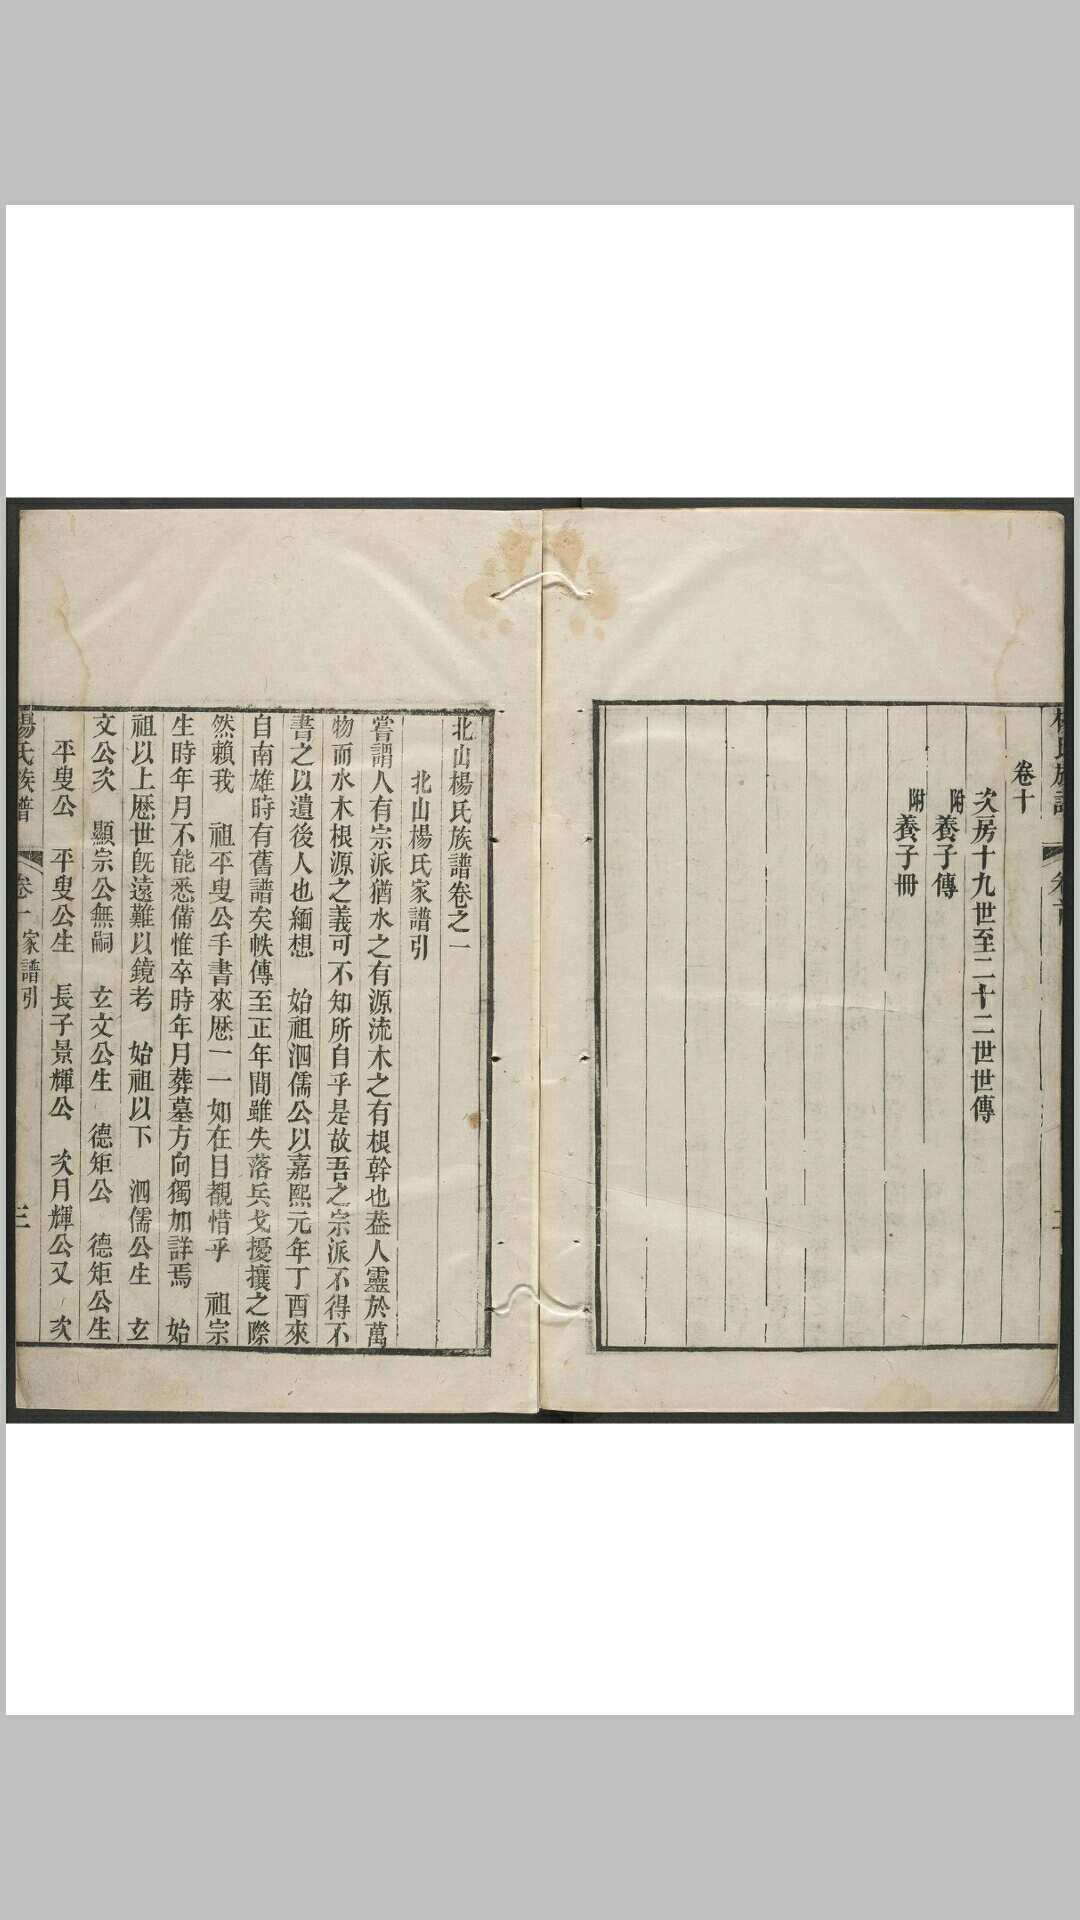 楊氏族譜
卷首
卷十
次房十九世至二十二世世傳
附養子傳
附養子冊
北山楊氏族譜卷之一
北山楊氏家譜引
嘗謂人有宗派猶水之有源流木之有根幹也葢人靈於萬
物而水木根源之義可不知所自乎是故吾之宗派不得不
書之以遺後人也緬想 始祖泗儒公以嘉熙元年丁酉來
自南雄時有舊譜矣帙傳至正年間雖失落兵戈擾攘之際
然賴我 祖平叟公手書來歷一一如在目覩惜乎 祖宗
生時年月不能悉備惟卒時年月葬墓方向獨加詳焉 始
祖以上歷世旣遠難以鏡考 始祖以下 泗儒公生 玄
文公次 顯宗公無嗣 玄文公生 德矩公 德矩公生
平叟公 平叟公生 長子景輝公 次月輝公又 次
楊氏族譜
卷一家譜引
三